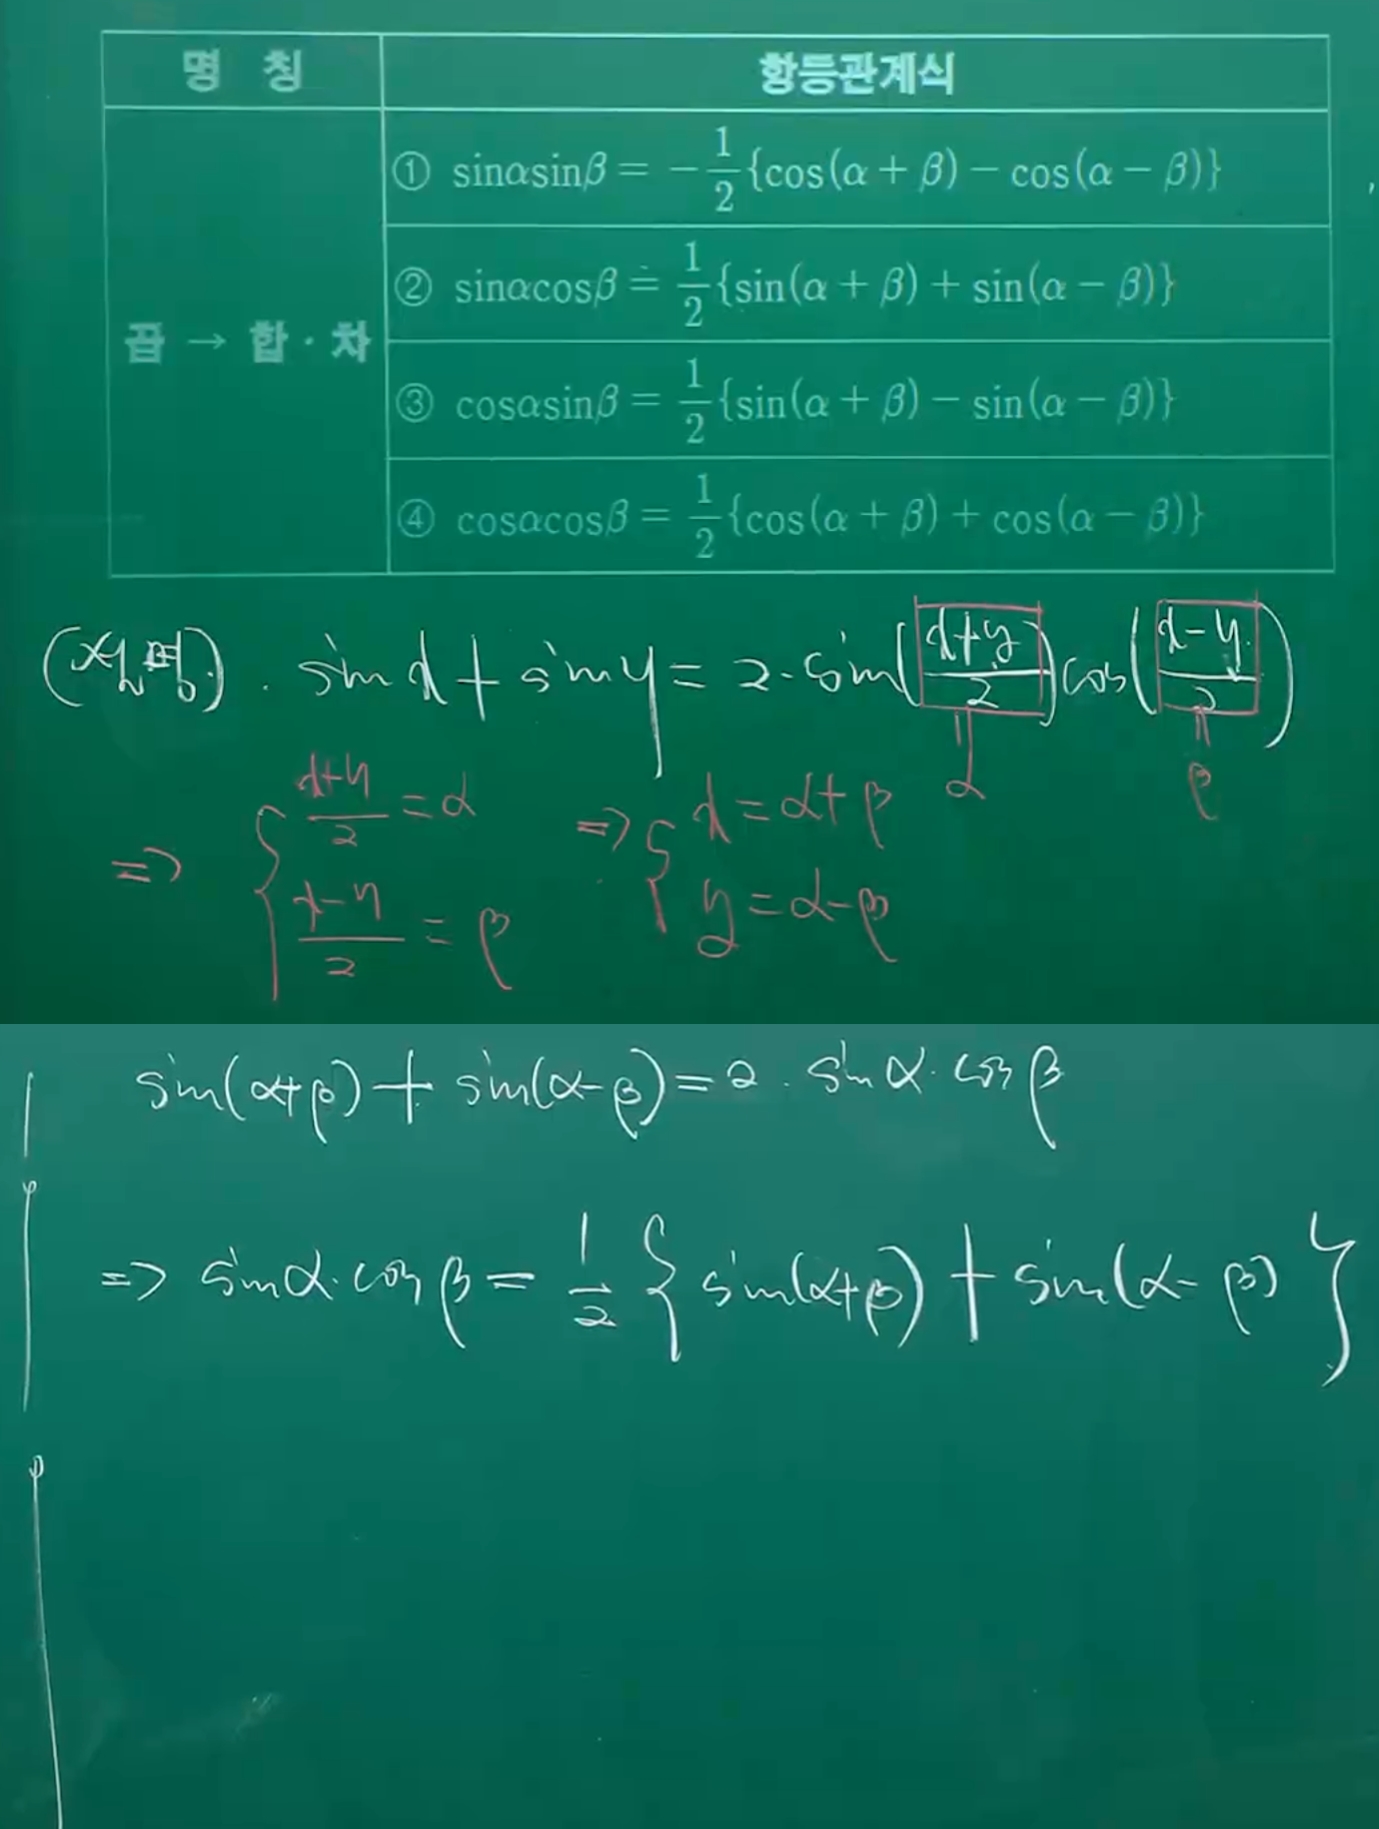 명 칭 항등관계식
① sinαsinβ = -1/2{cos(α + β) - cos(α - β)}
② sinαcosβ = 1/2{sin(α + β) + sin(α - β)}
곱 → 합 · 차
③ cosαsinβ = 1/2{sin(α + β) - sin(α - β)}
④ cosαcosβ = 1/2{cos(α + β) + cos(α - β)}
(설명). sin x + sin y = 2·sin((x+y)/2)cos((x-y)/2)
|| α || β
⇒ { (x+y)/2 = α ⇒ { x = α+β
(x-y)/2 = β y = α-β
sin(α+β) + sin(α-β) = 2 · sin α · cos β
⇒ sin α · cos β = 1/2 { sin(α+β) + sin(α-β) }